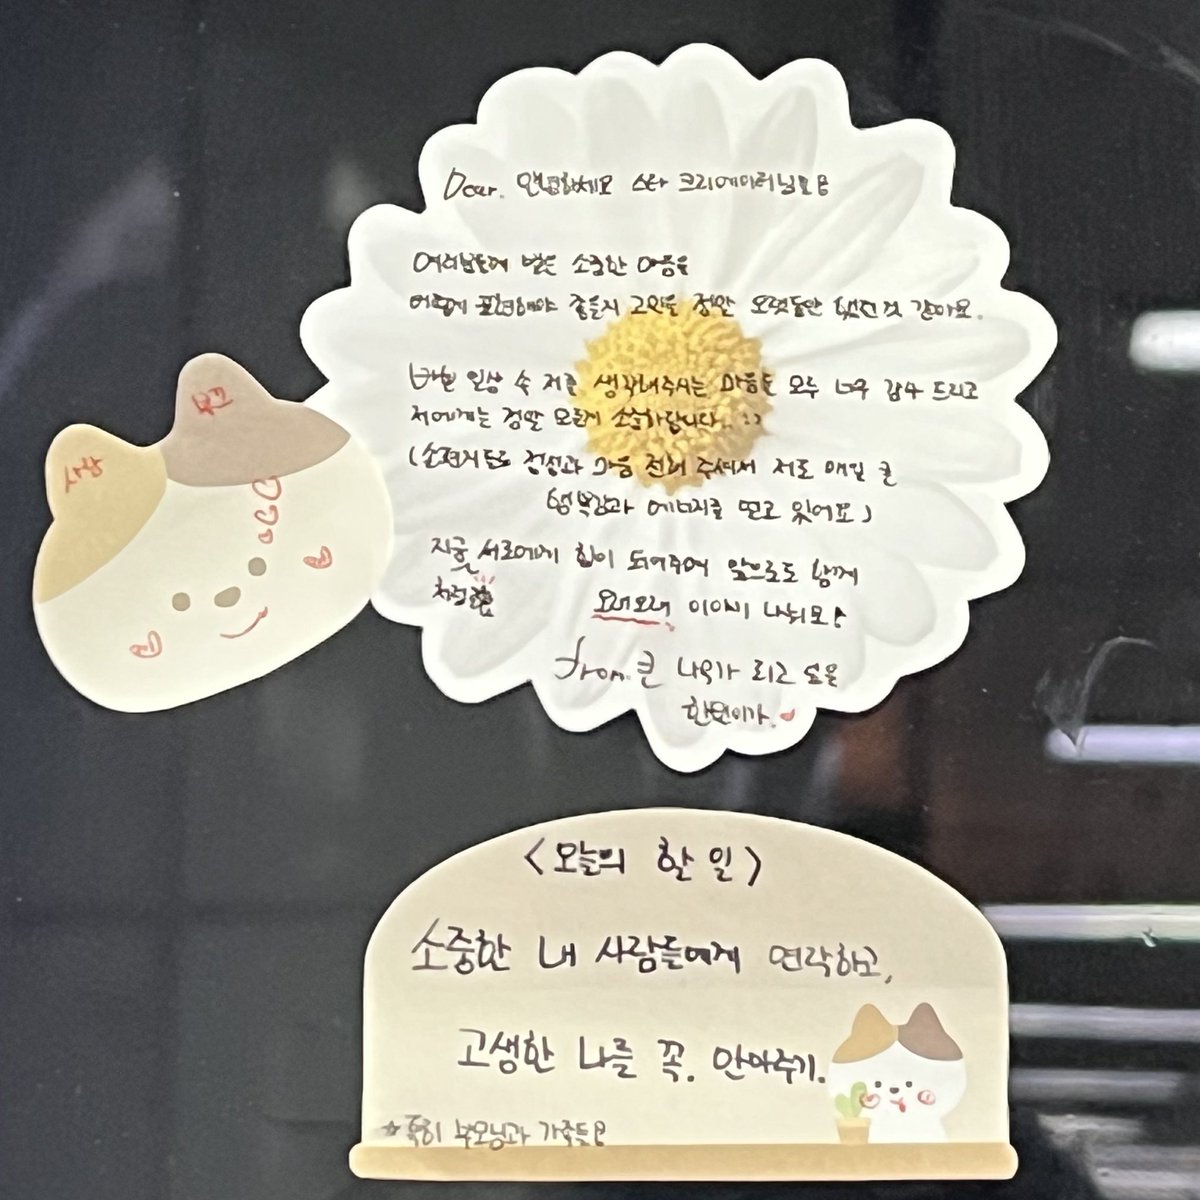 Dear. 안녕하세요 스타 크리에이터님들
여러분들에 받은 소중한 마음을
어떻게 표현해야 좋을지 고민을 정말 오랫동안 했던 것 같아요.
바쁜 일상 속 저를 생각해주시는 마음들 모두 너무 감사 드리고
저에게는 정말 모든게 소중하답니다. :)
(손편지들로 정성과 마음 전해 주셔서 저도 매일 큰
행복감과 에너지를 얻고 있어요)
지금 서로에게 힘이 되어주며 앞으로도 함께
처럼 오래오래 이야기 나눠요♪
from. 큰 나무가 되고 싶은
이가 ♥
사랑
<오늘의 할 일>
소중한 내 사람들에게 연락하고,
고생한 나를 꼭. 안아주기.
☆특히 부모님과 가족들